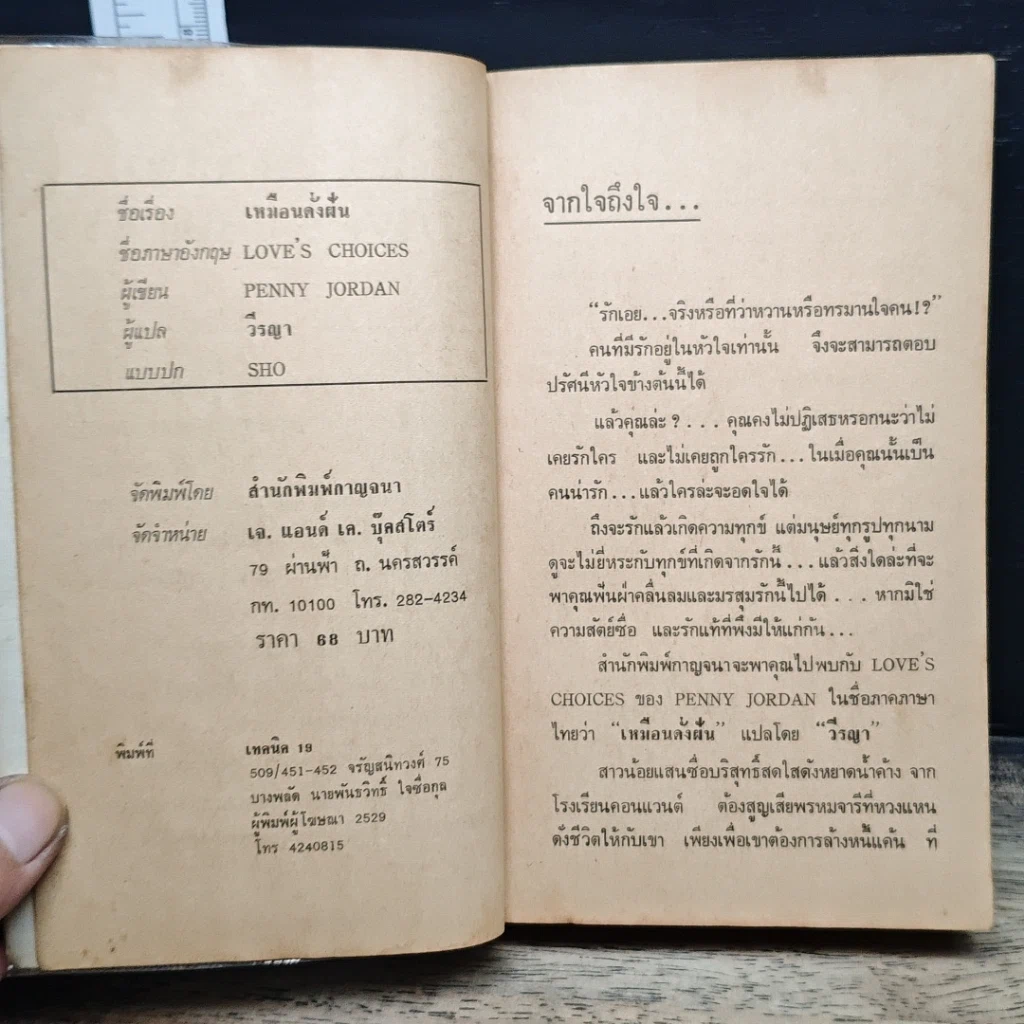 8
ชื่อเรื่อง เหมือนดั่งฝัน
ชื่อภาษาอังกฤษ LOVE'S CHOICES
ผู้เขียน PENNY JORDAN
ผู้แปล วีรญา
แบบปก SHO
จัดพิมพ์โดย สำนักพิมพ์กาญจนา
จัดจำหน่าย เจ. แอนด์ เค. บุ๊คสโตร์
79 ผ่านฟ้า ถ. นครสวรรค์
กท. 10100 โทร. 282-4234
ราคา 68 บาท
พิมพ์ที่ เทคนิค 19
509/451-452 จรัญสนิทวงศ์ 75
บางพลัด นายพันธวิทธิ์ ใจซื่อกุล
ผู้พิมพ์ผู้โฆษณา 2529
โทร 4240815
จากใจถึงใจ...
"รักเอย...จริงหรือที่ว่าหวานหรือทรมานใจคน!?"
คนที่มีรักอยู่ในหัวใจเท่านั้น จึงจะสามารถตอบ
ปริศนีหัวใจข้างต้นนี้ได้
แล้วคุณล่ะ ? ... คุณคงไม่ปฏิเสธหรอกนะว่าไม่
เคยรักใคร และไม่เคยถูกใครรัก...ในเมื่อคุณนั้นเป็น
คนน่ารัก...แล้วใครล่ะจะอดใจได้
ถึงจะรักแล้วเกิดความทุกข์ แต่มนุษย์ทุกรูปทุกนาม
ดูจะไม่ยี่หระกับทุกข์ที่เกิดจากรักนี้...แล้วสิ่งใดล่ะที่จะ
พาคุณฟันฝ่าคลื่นลมและมรสุมรักนี้ไปได้ ... หากมิใช่
ความสัตย์ซื่อ และรักแท้ที่พึงมีให้แก่กัน...
สำนักพิมพ์กาญจนาจะพาคุณไปพบกับ LOVE'S
CHOICES ของ PENNY JORDAN ในชื่อภาคภาษา
ไทยว่า "เหมือนดั่งฝัน" แปลโดย "วีรญา"
สาวน้อยแสนซื่อบริสุทธิ์สดใสดังหยาดน้ำค้าง จาก
โรงเรียนคอนแวนต์ ต้องสูญเสียพรหมจารีที่หวงแหน
ดั่งชีวิตให้กับเขา เพียงเพื่อเขาต้องการล้างหนี้แค้น ที่